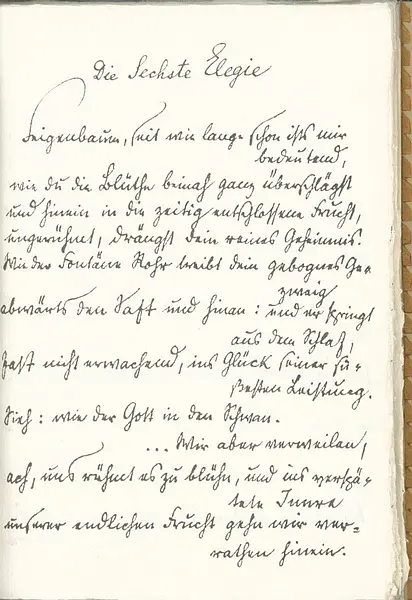 Die Sechste Elegie
Feigenbaum, seit wie lange schon ists mir
bedeutend,
wie du die Blüthe beinah ganz überschlägst
und hinein in die zeitig entschlossene Frucht,
ungerühmt, drängst dein reines Geheimnis.
Wie der Fontäne Rohr treibt dein gebognes Ge-
zweig
abwärts den Saft und hinan: und er springt
aus dem Schlaf,
fast nicht erwachend, ins Glück seiner sü-
ßesten Leistung.
Sieh: wie der Gott in den Schwan.
... Wir aber verweilen,
ach, uns rühmt es zu blühn, und ins verspä-
tete Innre
unserer endlichen Frucht gehn wir ver-
rathen hinein.